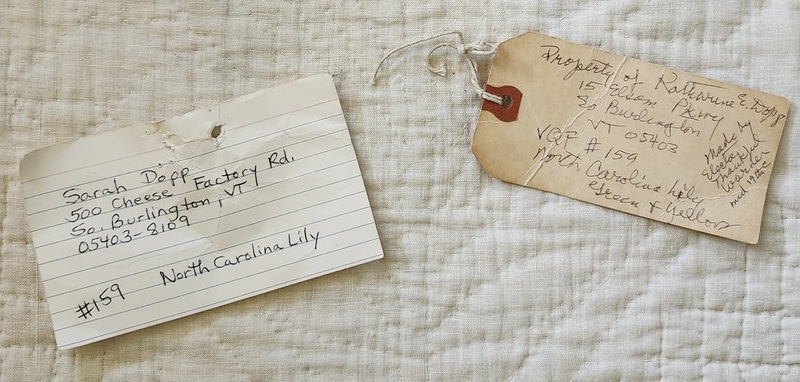 Sarah Dopp
500 Cheese Factory Rd.
So. Burlington, VT
05403-8109
#159 North Carolina Lily
Property of Katharine E. Dopp
15 Elsom Pkwy
So Burlington
VT 05403
VQR #159
North Carolina Lily
Green & Yellow
Made by
Electa
Thankful
Warner
mid 19th C